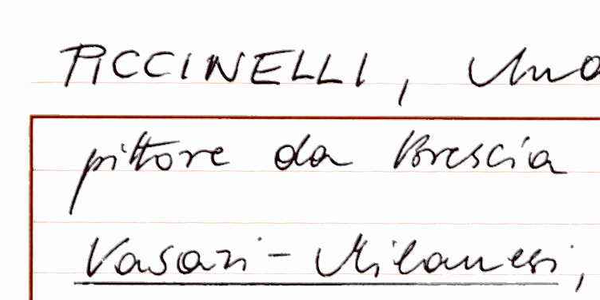 PICCINELLI,
pittore da Brescia
Vasari - Milanesi,